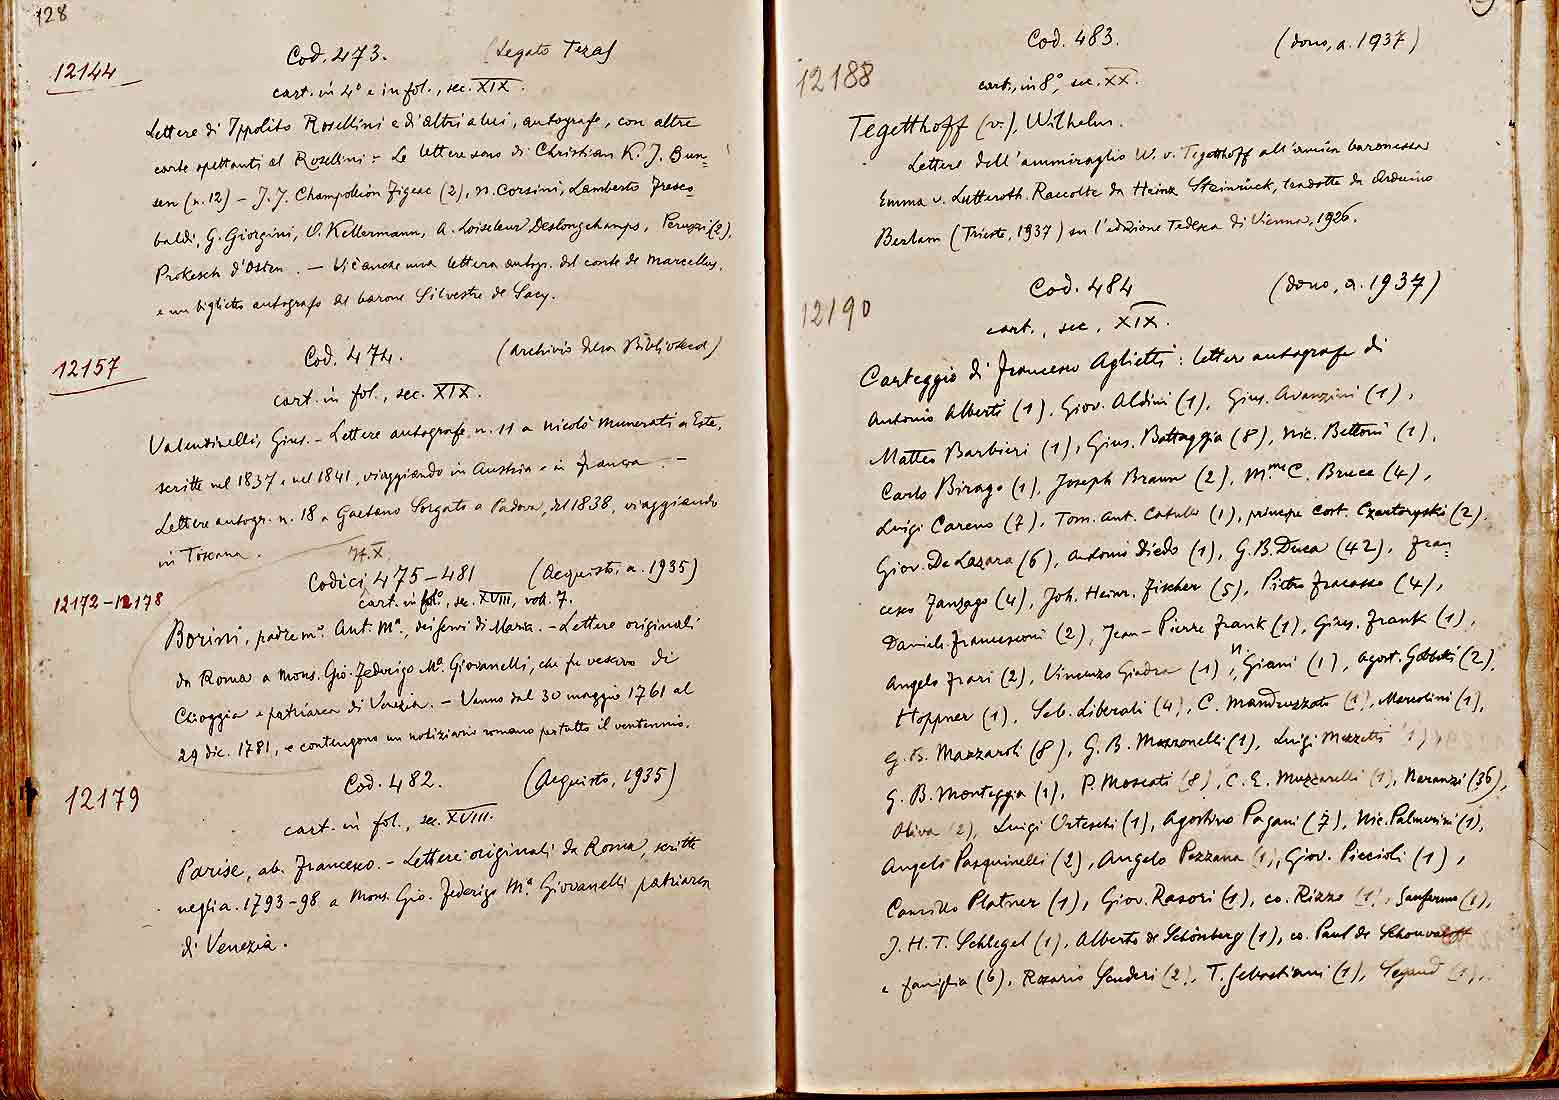 128
12144
Cod. 473. (Legato Teza)
cart. in 4° e in fol., sec. XIX.
Lettere di Ippolito Rosellini e di altri a lui, autografe, con altre
carte spettanti al Rosellini: Le lettere sono di Christian K. J. Bun-
sen (n. 12) – J. J. Champollion Figeac (2), N. Corsini, Lamberto Fresco-
baldi, G. Giorgini, O. Kellermann, A. Loiseleur Deslongchamps, Peruzzi (2),
Prokesch d'Osten. – Vi è anche una lettera autogr. del conte de Marcellus,
e un biglietto autografo del barone Silvestre de Sacy.
12157
Cod. 474. (Archivio della Biblioteca)
cart. in fol., sec. XIX.
Valentinelli, Gius. – Lettere autografe, n. 11 a Nicolò Munerati a Este,
scritte nel 1837 e nel 1841, viaggiando in Austria e in Francia. –
Lettere autogr. n. 18 a Gaetano Sorgato a Padova, del 1838, viaggiando
in Toscana.
It. X.
12172–12178
Codici 475–481 (Acquisto, a. 1935)
cart. in fol°, sec. XVIII, voll. 7.
Borini, padre m° Ant. Mª, dei servi di Maria. – Lettere originali
da Roma a Mons. Gio. Federigo Mª Giovanelli, che fu vescovo di
Chioggia e patriarca di Venezia. – Vanno dal 30 maggio 1761 al
29 dic. 1781, e contengono un notiziario romano per tutto il ventennio.
12179
Cod. 482. (Acquisto, 1935)
cart. in fol., sec. XVIII.
Parise, ab. Francesco. – Lettere originali da Roma, scritte
negli a. 1793–98 a Mons. Gio. Federigo Mª Giovanelli patriarca
di Venezia.
12188
Cod. 483. (dono, a. 1937)
cart., in 8°, sec. XX.
Tegetthoff (v.), Wilhelm.
Lettere dell'ammiraglio W. v. Tegetthoff all'amica baronessa
Emma v. Lutteroth. Raccolte da Heinz Steinrück, tradotte da Arduino
Berlam (Trieste, 1937) su l'edizione tedesca di Vienna, 1926.
12190
Cod. 484 (dono, a. 1937)
cart., sec. XIX.
Carteggio di Francesco Aglietti: lettere autografe di
Antonio Alberti (1), Giov. Aldini (1), Gius. Avanzini (1),
Matteo Barbieri (1), Gius. Battaggia (8), Nic. Bettoni (1),
Carlo Birago (1), Joseph Braun (2), M.me C. Bruce (4),
Luigi Careno (7), Tom. Ant. Catullo (1), principe Cost. Czartoryski (2),
Giov. De Lazara (6), Antonio Diedo (1), G. B. Duca (42), Fran-
cesco Fanzago (4), Joh. Heinr. Fischer (5), Pietro Fracasso (4),
Daniele Francesconi (2), Jean-Pierre Frank (1), Gius. Frank (1),
Angelo Frari (2), Vincenzo Giadra (1), N. Giani (1), Agost. (2),
Hoppner (1), Seb. Liberali (4), C. Mandruzzato (1), Marcolini (1),
G. B. Mazzaroli (8), G. B. Mazzonelli (1), Luigi (1),
G. B. Monteggia (1), P. Moscati (8), C. E. Muzzarelli (1), Naranzi (36),
Oliva (2), Luigi Orteschi (1), Agostino Pagani (7), Nic. Palmerini (1),
Angelo Pasquinelli (2), Angelo Pezzana (1), Giov. Piccioli (1),
Camillo Platner (1), Giov. Rasori (1), co. Rizzo (1), Sanfermo (1),
J. H. T. Schlegel (1), Alberto de Schönberg (1), co. Paul de Schouvaloff
e famiglia (6), Rosario Scuderi (2), T. Sebastiani (1), Segand (1),